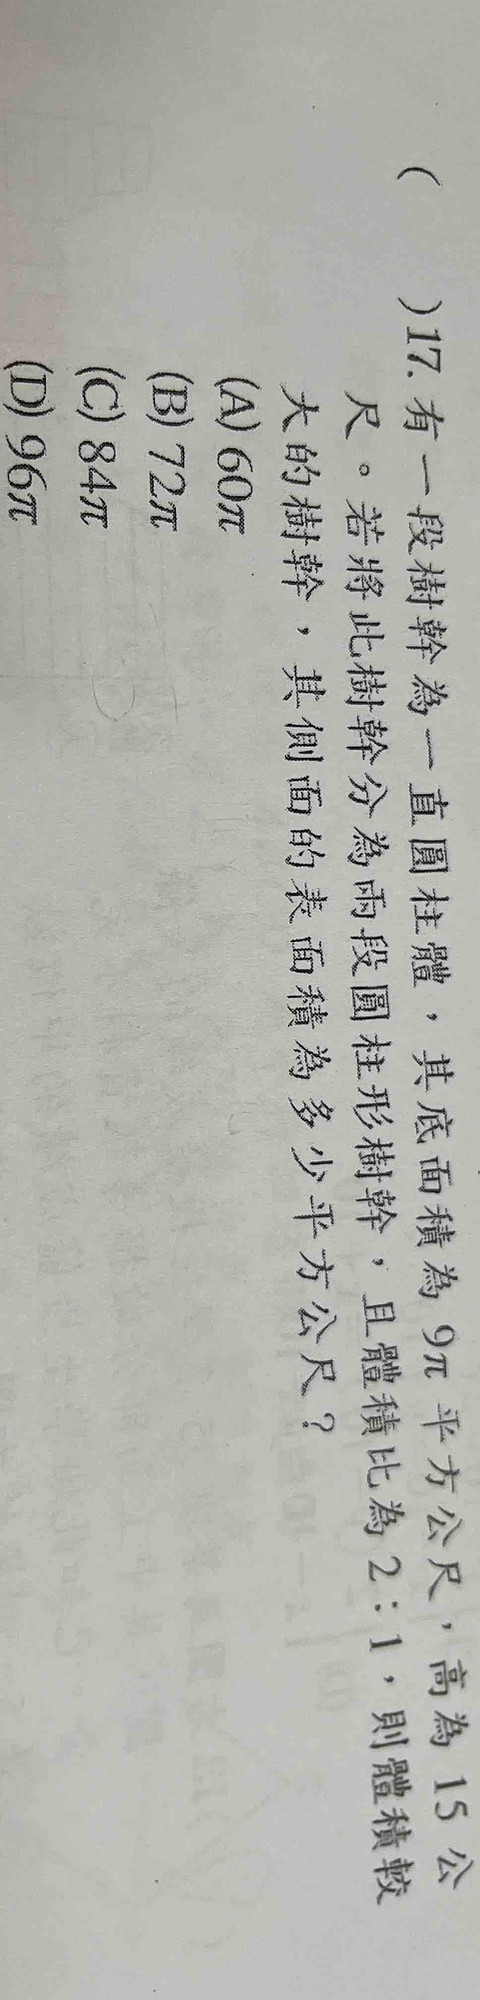 ( )17. 有一段樹幹為一直圓柱體，其底面積為 9π 平方公尺，高為 15 公
尺。若將此樹幹分為兩段圓柱形樹幹，且體積比為 2：1，則體積較
大的樹幹，其側面的表面積為多少平方公尺？
(A) 60π
(B) 72π
(C) 84π
(D) 96π